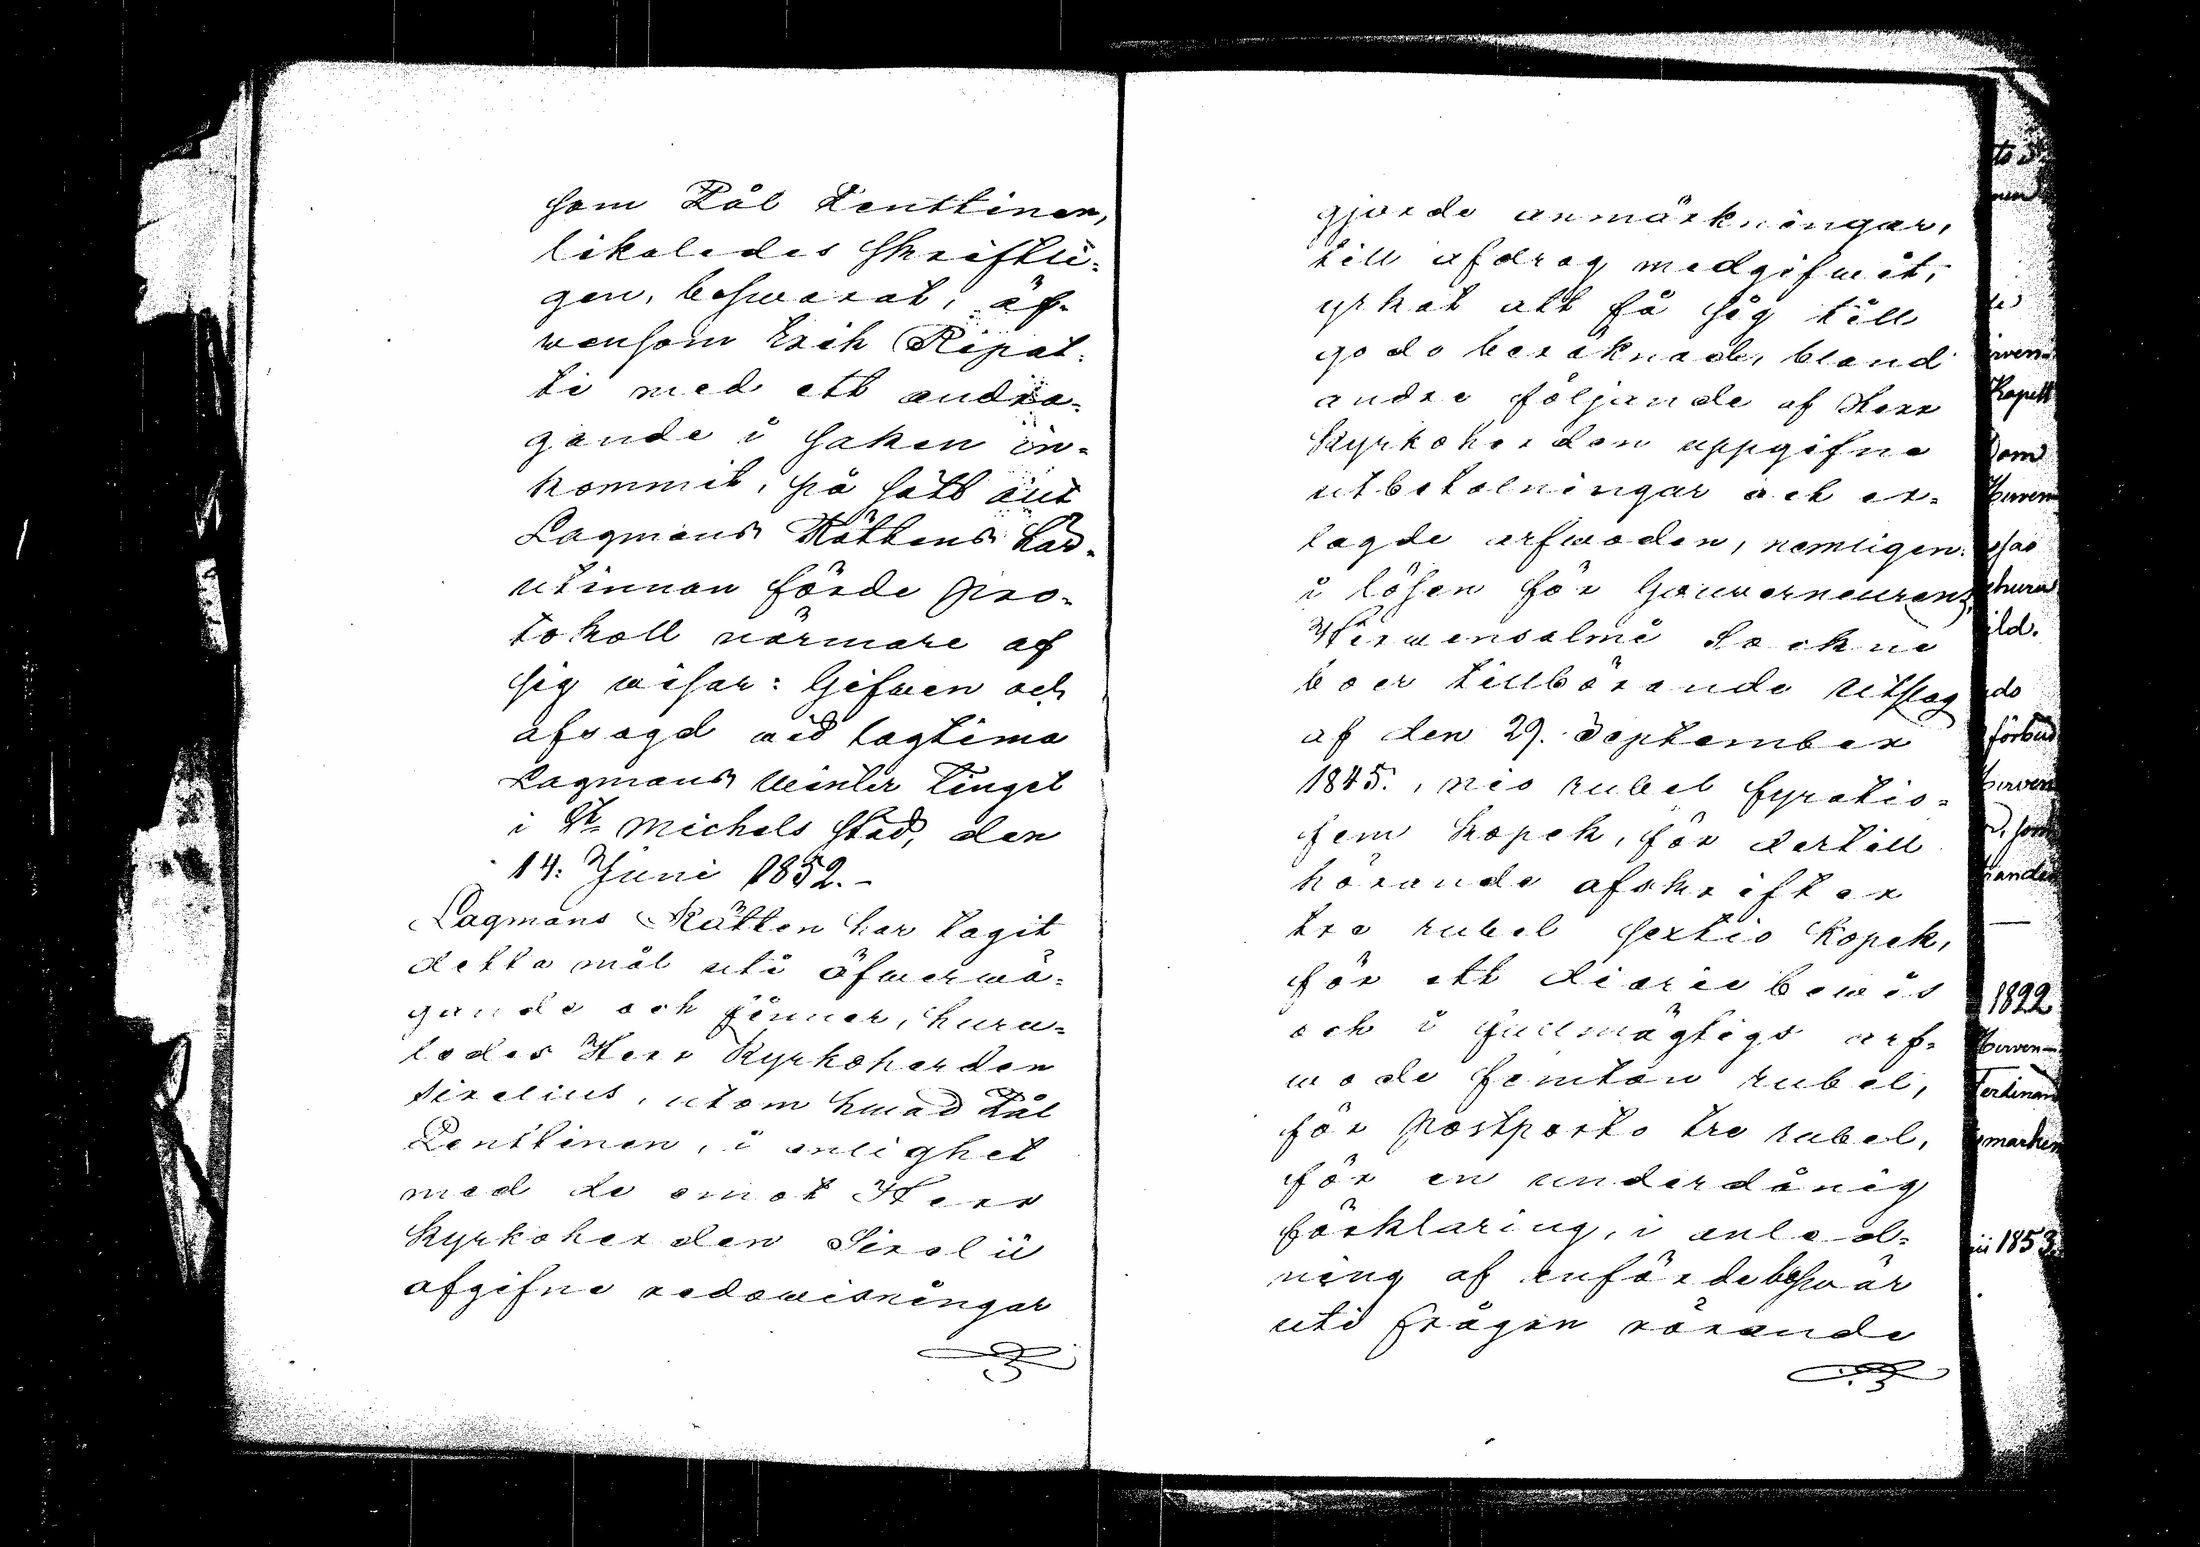 som Pål Penttinen,
likaledes skriftli-
gen, beswarat, äf-
wensom Erik Ripat-
ti med ett andra-
gande i saken in-
kommit, på sätt det
Lagmans Rättens här-
utinnan förde pro-
tokoll närmare af
sig wisar: Gifwen och
afsagd wid lagtima
Lagmans Winter Tinget
i St Michels stad, den
14: Juni 1852.-
Lagmans Rätten har tagit
detta mål uti öfwerwä-
gande och finner, huru-
ledes Herr Kyrkoherden
Sirelius, utom hwad Pål
Penttinen, i enlighet
med de emot Herr
Kyrkoherden Sirelii
afgifne redowisningar
gjorde anmärkningar,
till afdrag medgifwit,
yrkat att få sig till
godo beräknade, bland
andre följande af Herr
Kyrkoherden uppgifne
utbetalningar och er-
lagde arfwoden, nemligen:
i lösen för Gouverneurens,
Hirwensalmi Sockne
boer tillhörande Utslag
af den 29. September
1845., nio rubel fyratio-
fem kopek, för dertill
hörande afskrifter
tre rubel sextio kopek,
för ett diarie bewis
och i fullmägtigs arf-
wode femton rubel,
för postporto tre rubel,
för en underdånig
förklaring, i anled-
ning af anförde beswär
uti frågan rörande
1822
Ferdinan
iii 1853